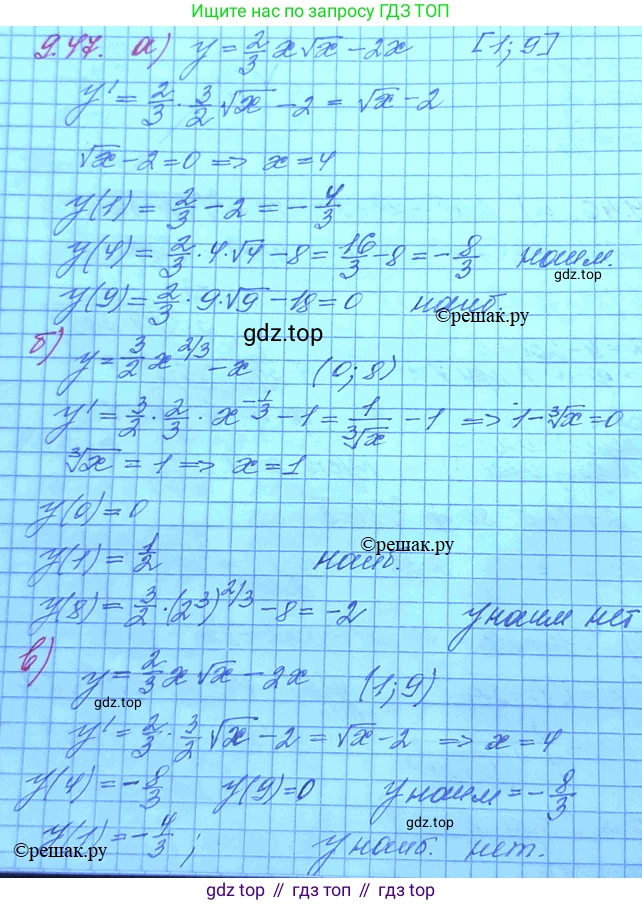 Ищите нас по запросу ГДЗ ТОП
9.47. а) y = 2/3 x√x − 2x [1; 9]
y' = 2/3 · 3/2 √x − 2 = √x − 2
√x − 2 = 0 => x = 4
y(1) = 2/3 − 2 = −4/3
y(4) = 2/3 · 4 · √4 − 8 = 16/3 − 8 = −8/3 наим.
gdz.top
y(9) = 2/3 · 9 · √9 − 18 = 0 наиб.
©решак.ру
gdz.top
б) y = 3/2 x^(2/3) − x (0; 8)
y' = 3/2 · 2/3 · x^(−1/3) − 1 = 1/∛x − 1 => 1 − ∛x = 0
∛x = 1 => x = 1
y(0) = 0
©решак.ру
y(1) = 1/2 наиб.
y(8) = 3/2 · (2³)^(2/3) − 8 = −2 y наим нет
в) y = 2/3 x√x − 2x (1; 9)
gdz.top
y' = 2/3 · 3/2 √x − 2 = √x − 2 => x = 4
y(4) = −8/3 y(9) = 0 y наим = −8/3
y(1) = −4/3 ; y наиб. нет.
©решак.ру
gdz.top // гдз топ // gdz.top // гдз топ